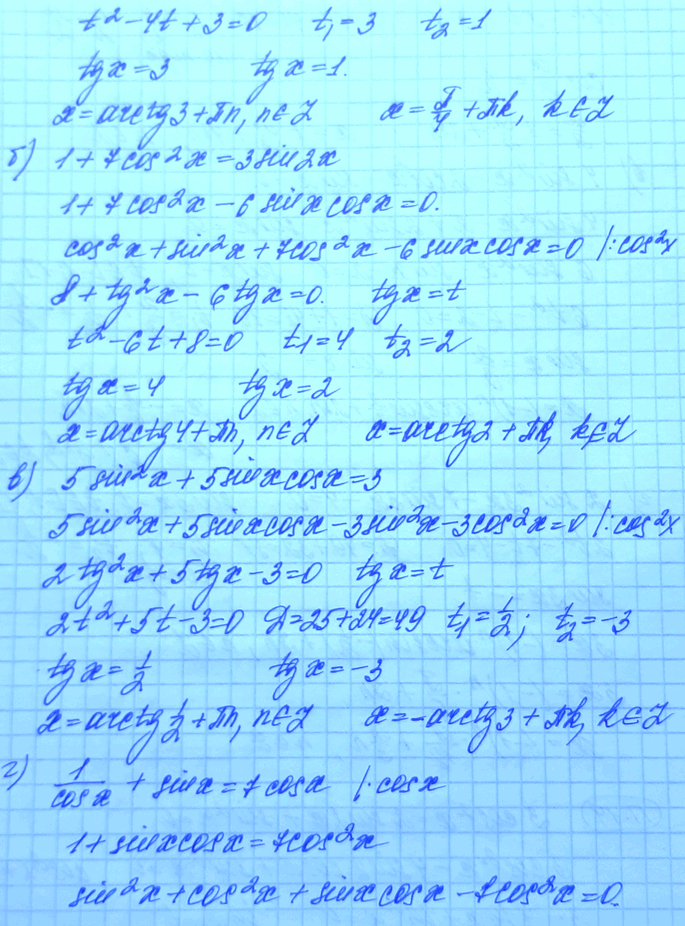 t² - 4t + 3 = 0 t₁ = 3 t₂ = 1
tgx = 3 tgx = 1.
x = arctg3 + πn, n∈Z x = π/4 + πk, k∈Z
б) 1 + 7cos²x = 3sin2x
1 + 7cos²x - 6sinxcosx = 0.
cos²x + sin²x + 7cos²x - 6sinxcosx = 0 |:cos²x
8 + tg²x - 6tgx = 0. tgx = t
t² - 6t + 8 = 0 t₁ = 4 t₂ = 2
tgx = 4 tgx = 2
x = arctg4 + πn, n∈Z x = arctg2 + πk, k∈Z
в) 5sin²x + 5sinxcosx = 3
5sin²x + 5sinxcosx - 3sin²x - 3cos²x = 0 |:cos²x
2tg²x + 5tgx - 3 = 0 tgx = t
2t² + 5t - 3 = 0 D = 25 + 24 = 49 t₁ = 1/2; t₂ = -3
tgx = 1/2 tgx = -3
x = arctg 1/2 + πn, n∈Z x = -arctg3 + πk, k∈Z
г) 1/cosx + sinx = 7cosx |·cosx
1 + sinxcosx = 7cos²x
sin²x + cos²x + sinxcosx - 7cos²x = 0.